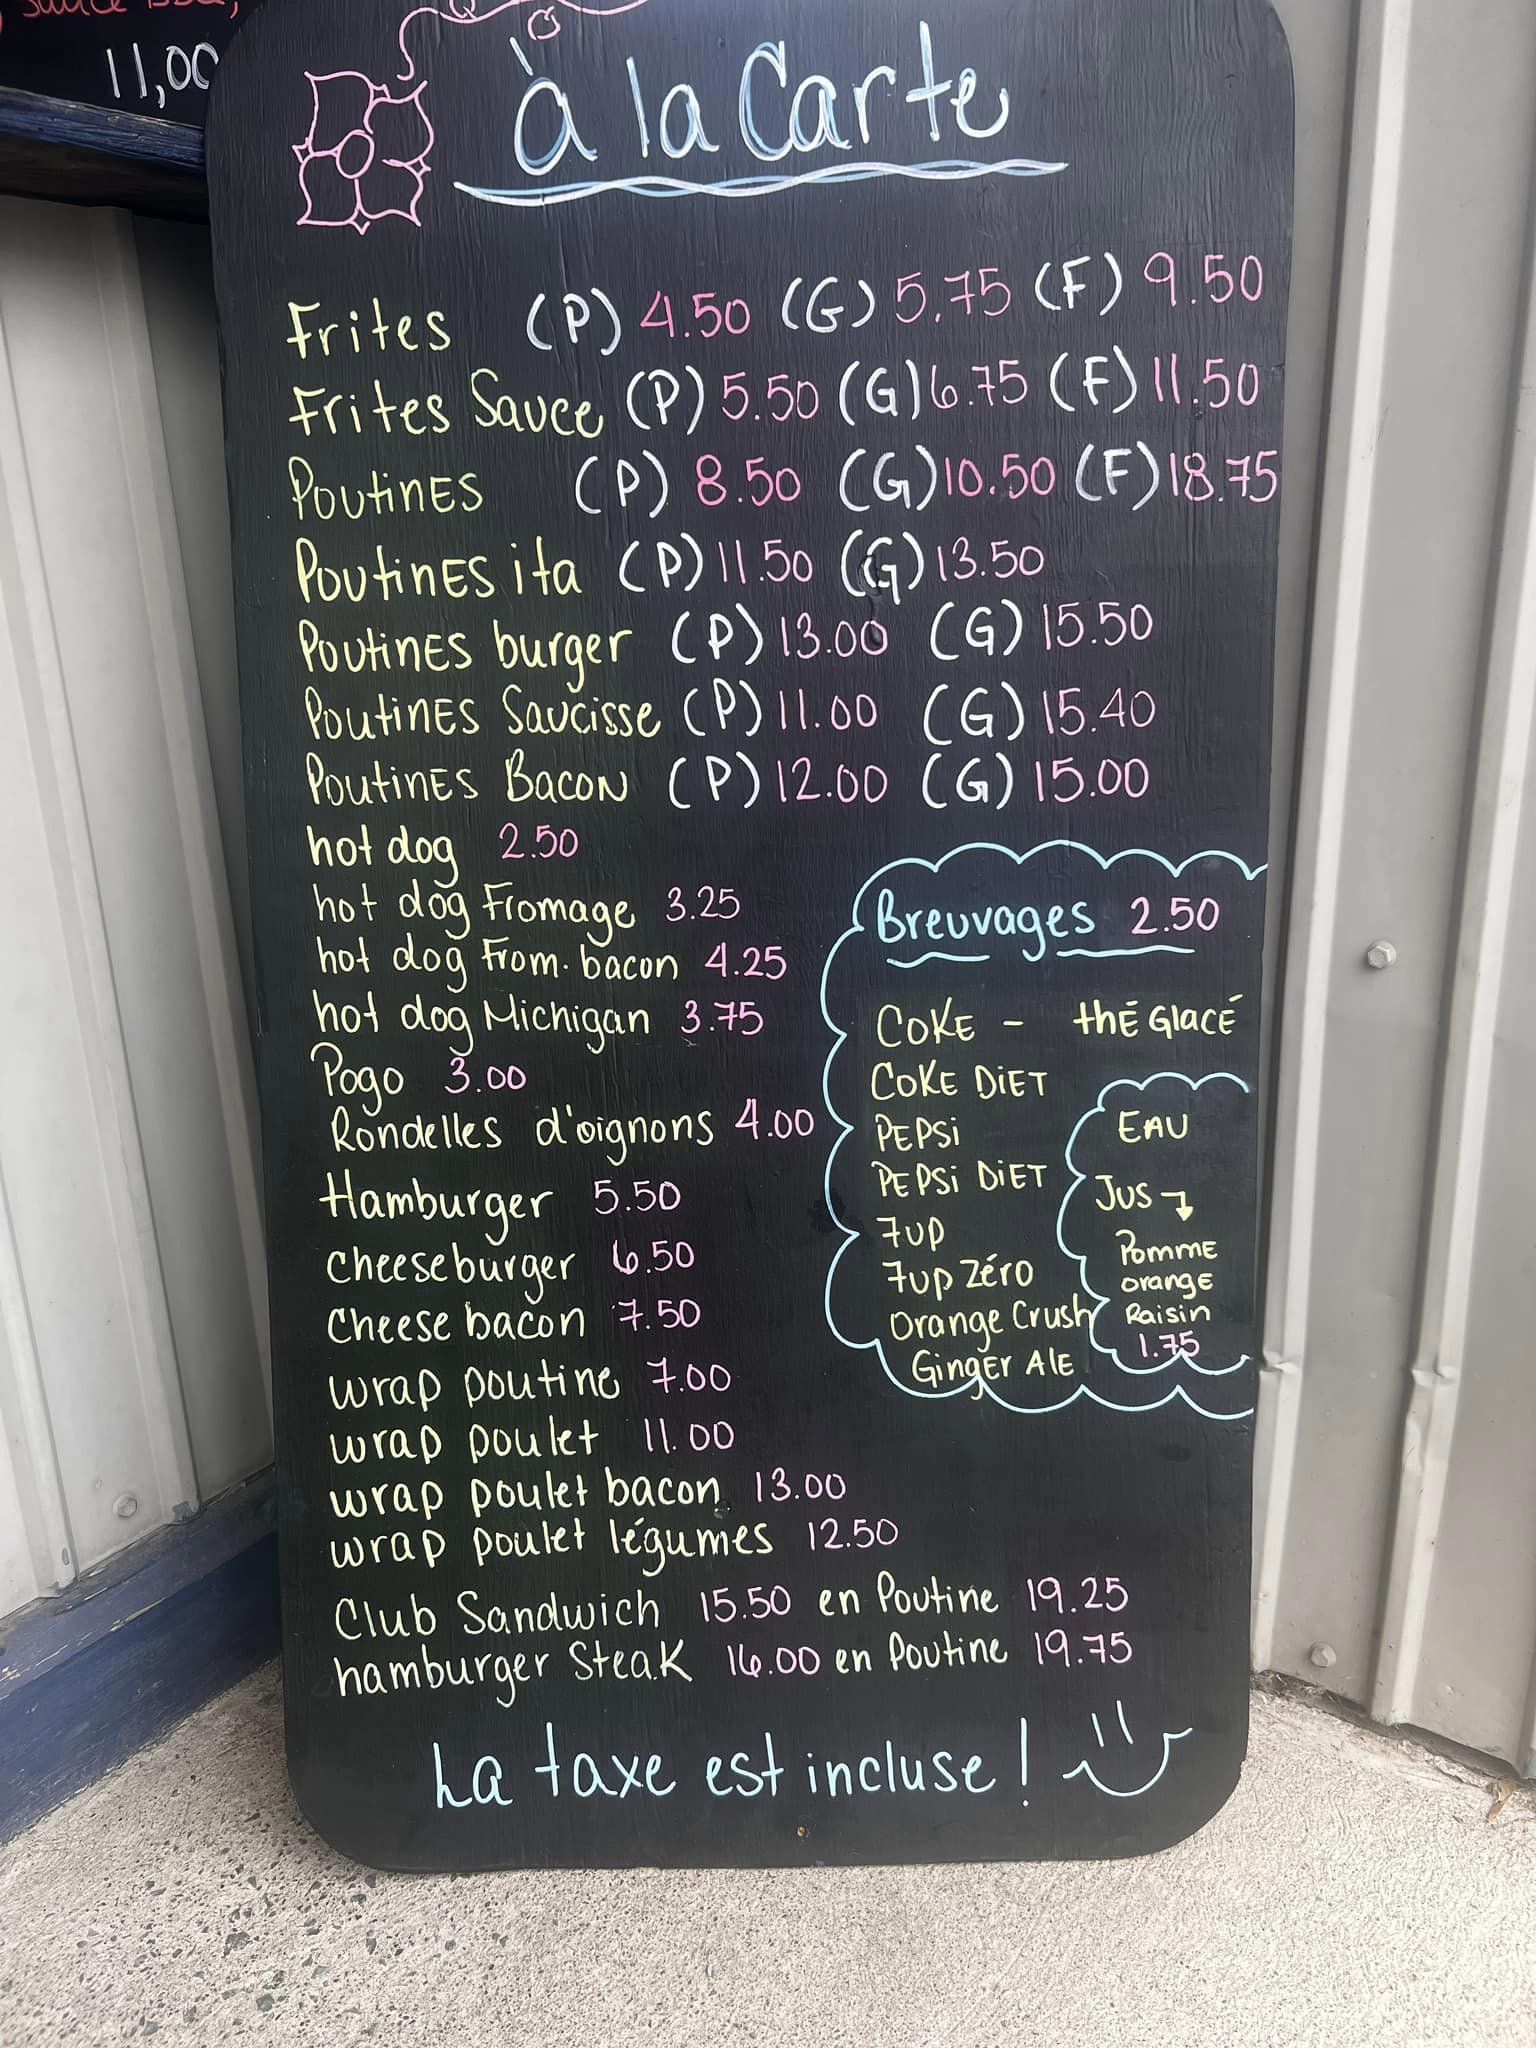 11,00
à la Carte
Frites (P) 4.50 (G) 5.75 (F) 9.50
Frites Sauce (P) 5.50 (G) 6.75 (F) 11.50
Poutines (P) 8.50 (G) 10.50 (F) 18.75
Poutines ita (P) 11.50 (G) 13.50
Poutines burger (P) 13.00 (G) 15.50
Poutines Saucisse (P) 11.00 (G) 15.40
Poutines Bacon (P) 12.00 (G) 15.00
hot dog 2.50
hot dog Fromage 3.25
hot dog From. bacon 4.25
hot dog Michigan 3.75
Pogo 3.00
Rondelles d'oignons 4.00
Hamburger 5.50
Cheeseburger 6.50
Cheese bacon 7.50
wrap poutine 7.00
wrap poulet 11.00
wrap poulet bacon 13.00
wrap poulet légumes 12.50
Club Sandwich 15.50 en Poutine 19.25
hamburger Steak 16.00 en Poutine 19.75
Breuvages 2.50
COKE - thé Glacé
COKE DiET
PEPSi
PEPSi DiET
7up
7up Zéro
Orange Crush
Ginger Ale
EAU
JUS
Pomme
orange
Raisin
1.75
La taxe est incluse !